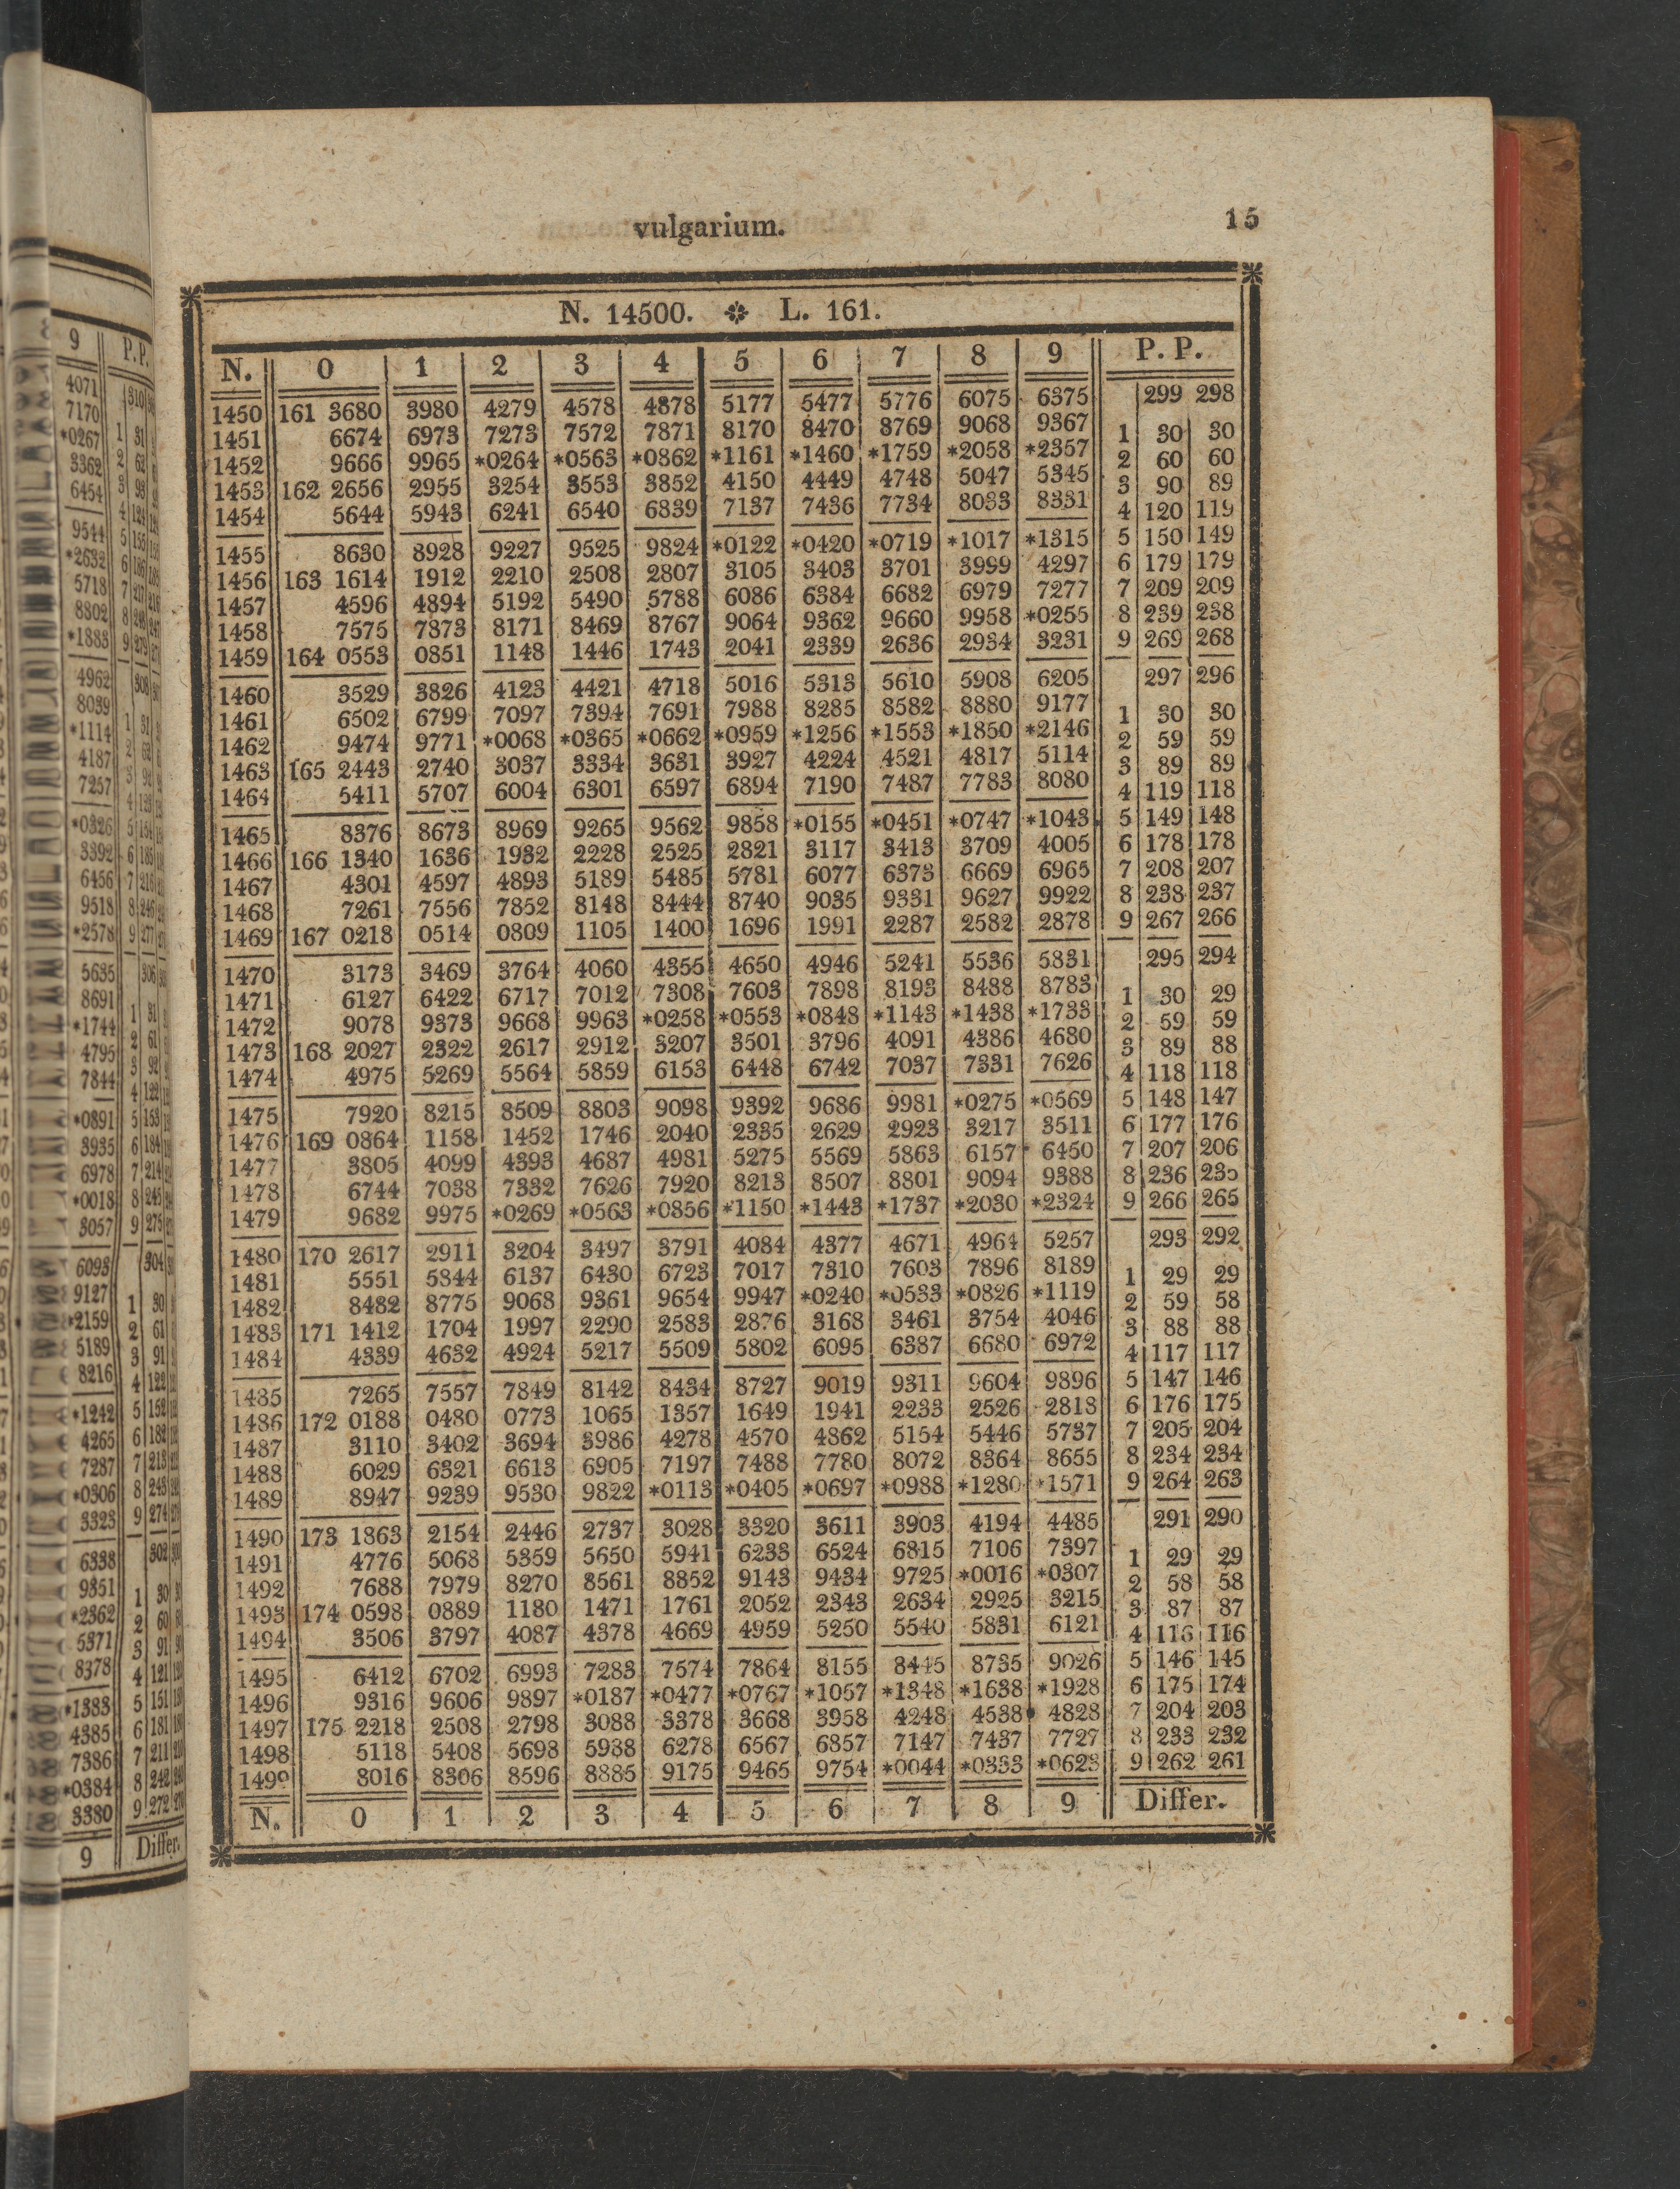 vulgarium. 15
N. 14500. L. 161.
N. 0 1 2 3 4 5 6 7 8 9 P. P.
1450 161 3680 3980 4279 4578 4878 5177 5477 5776 6075 6375 299 298
1451 6674 6973 7273 7572 7871 8170 8470 8769 9068 9367 1 30 30
1452 9666 9965 *0264 *0563 *0862 *1161 *1460 *1759 *2058 *2357 2 60 60
1453 162 2656 2955 3254 3553 3852 4150 4449 4748 5047 5345 3 90 89
1454 5644 5943 6241 6540 6839 7137 7436 7734 8033 8331 4 120 119
1455 8630 8928 9227 9525 9824 *0122 *0420 *0719 *1017 *1315 5 150 149
1456 163 1614 1912 2210 2508 2807 3105 3403 3701 3999 4297 6 179 179
1457 4596 4894 5192 5490 5788 6086 6384 6682 6979 7277 7 209 209
1458 7575 7873 8171 8469 8767 9064 9362 9660 9958 *0255 8 239 238
1459 164 0553 0851 1148 1446 1743 2041 2339 2636 2934 3231 9 269 268
1460 3529 3826 4123 4421 4718 5016 5313 5610 5908 6205 297 296
1461 6502 6799 7097 7394 7691 7988 8285 8582 8880 9177 1 30 30
1462 9474 9771 *0068 *0365 *0662 *0959 *1256 *1553 *1850 *2146 2 59 59
1463 165 2443 2740 3037 3334 3631 3927 4224 4521 4817 5114 3 89 89
1464 5411 5707 6004 6301 6597 6894 7190 7487 7783 8080 4 119 118
1465 8376 8673 8969 9265 9562 9858 *0155 *0451 *0747 *1043 5 149 148
1466 166 1340 1636 1932 2228 2525 2821 3117 3413 3709 4005 6 178 178
1467 4301 4597 4893 5189 5485 5781 6077 6373 6669 6965 7 208 207
1468 7261 7556 7852 8148 8444 8740 9035 9331 9627 9922 8 238 237
1469 167 0218 0514 0809 1105 1400 1696 1991 2287 2582 2878 9 267 266
1470 3173 3469 3764 4060 4355 4650 4946 5241 5536 5831 295 294
1471 6127 6422 6717 7012 7308 7603 7898 8193 8488 8783 1 30 29
1472 9078 9373 9668 9963 *0258 *0553 *0848 *1143 *1438 *1733 2 59 59
1473 168 2027 2322 2617 2912 3207 3501 3796 4091 4386 4680 3 89 88
1474 4975 5269 5564 5859 6153 6448 6742 7037 7331 7626 4 118 118
1475 7920 8215 8509 8803 9098 9392 9686 9981 *0275 *0569 5 148 147
1476 169 0864 1158 1452 1746 2040 2335 2629 2923 3217 3511 6 177 176
1477 3805 4099 4393 4687 4981 5275 5569 5863 6157 6450 7 207 206
1478 6744 7038 7332 7626 7920 8213 8507 8801 9094 9388 8 236 235
1479 9682 9975 *0269 *0563 *0856 *1150 *1443 *1737 *2030 *2324 9 266 265
1480 170 2617 2911 3204 3497 3791 4084 4377 4671 4964 5257 293 292
1481 5551 5844 6137 6430 6723 7017 7310 7603 7896 8189 1 29 29
1482 8482 8775 9068 9361 9654 9947 *0240 *0533 *0826 *1119 2 59 58
1483 171 1412 1704 1997 2290 2583 2876 3168 3461 3754 4046 3 88 88
1484 4339 4632 4924 5217 5509 5802 6095 6387 6680 6972 4 117 117
1485 7265 7557 7849 8142 8434 8727 9019 9311 9604 9896 5 147 146
1486 172 0188 0480 0773 1065 1357 1649 1941 2233 2526 2818 6 176 175
1487 3110 3402 3694 3986 4278 4570 4862 5154 5446 5737 7 205 204
1488 6029 6321 6613 6905 7197 7488 7780 8072 8364 8655 8 234 234
1489 8947 9239 9530 9822 *0113 *0405 *0697 *0988 *1280 *1571 9 264 263
1490 173 1863 2154 2446 2737 3028 3320 3611 3903 4194 4485 291 290
1491 4776 5068 5359 5650 5941 6233 6524 6815 7106 7397 1 29 29
1492 7688 7979 8270 8561 8852 9143 9434 9725 *0016 *0307 2 58 58
1493 174 0598 0889 1180 1471 1761 2052 2343 2634 2925 3215 3 87 87
1494 3506 3797 4087 4378 4669 4959 5250 5540 5831 6121 4 116 116
1495 6412 6702 6993 7283 7574 7864 8155 8445 8735 9026 5 146 145
1496 9316 9606 9897 *0187 *0477 *0767 *1057 *1348 *1638 *1928 6 175 174
1497 175 2218 2508 2798 3088 3378 3668 3958 4248 4538 4828 7 204 203
1498 5118 5408 5698 5988 6278 6567 6857 7147 7437 7727 8 233 232
1499 8016 8306 8596 8885 9175 9465 9754 *0044 *0333 *0623 9 262 261
N. 0 1 2 3 4 5 6 7 8 9 Differ.